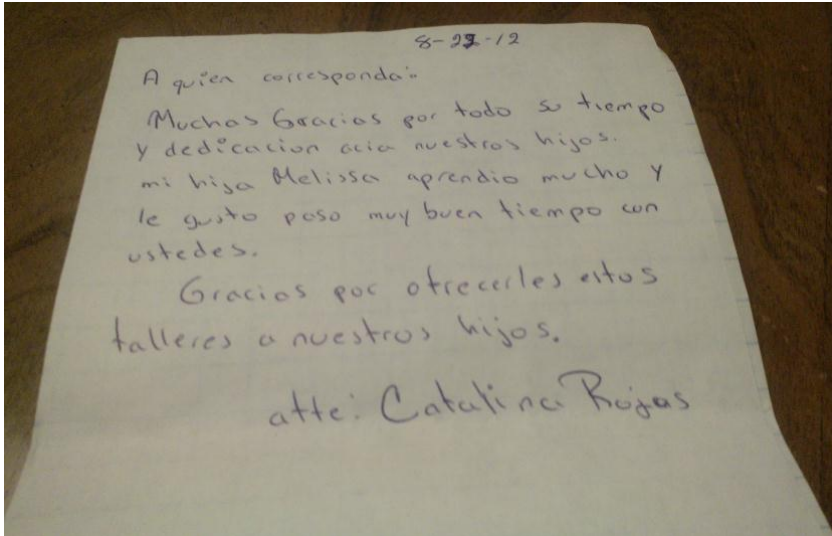 8-23-12
A quien corresponda:
Muchas Gracias por todo su tiempo
y dedicacion acia nuestros hijos.
mi hija Melissa aprendio mucho y
le gusto paso muy buen tiempo con
ustedes.
Gracias por ofrecerles estos
talleres a nuestros hijos.
atte: Catalina Rojas